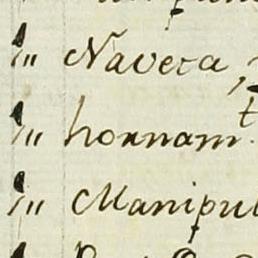 1,, Naveta,
1,, hornam.t
1,, Manipul